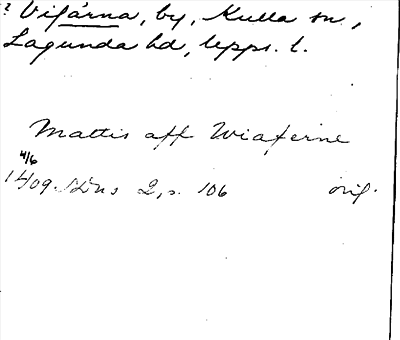 ? Vifärna, by, Kulla sn.,
Lagunda hd, Upps. l.
Mattis aff Wiaferne
4/6
1409. SDns 2, s. 106 orig.